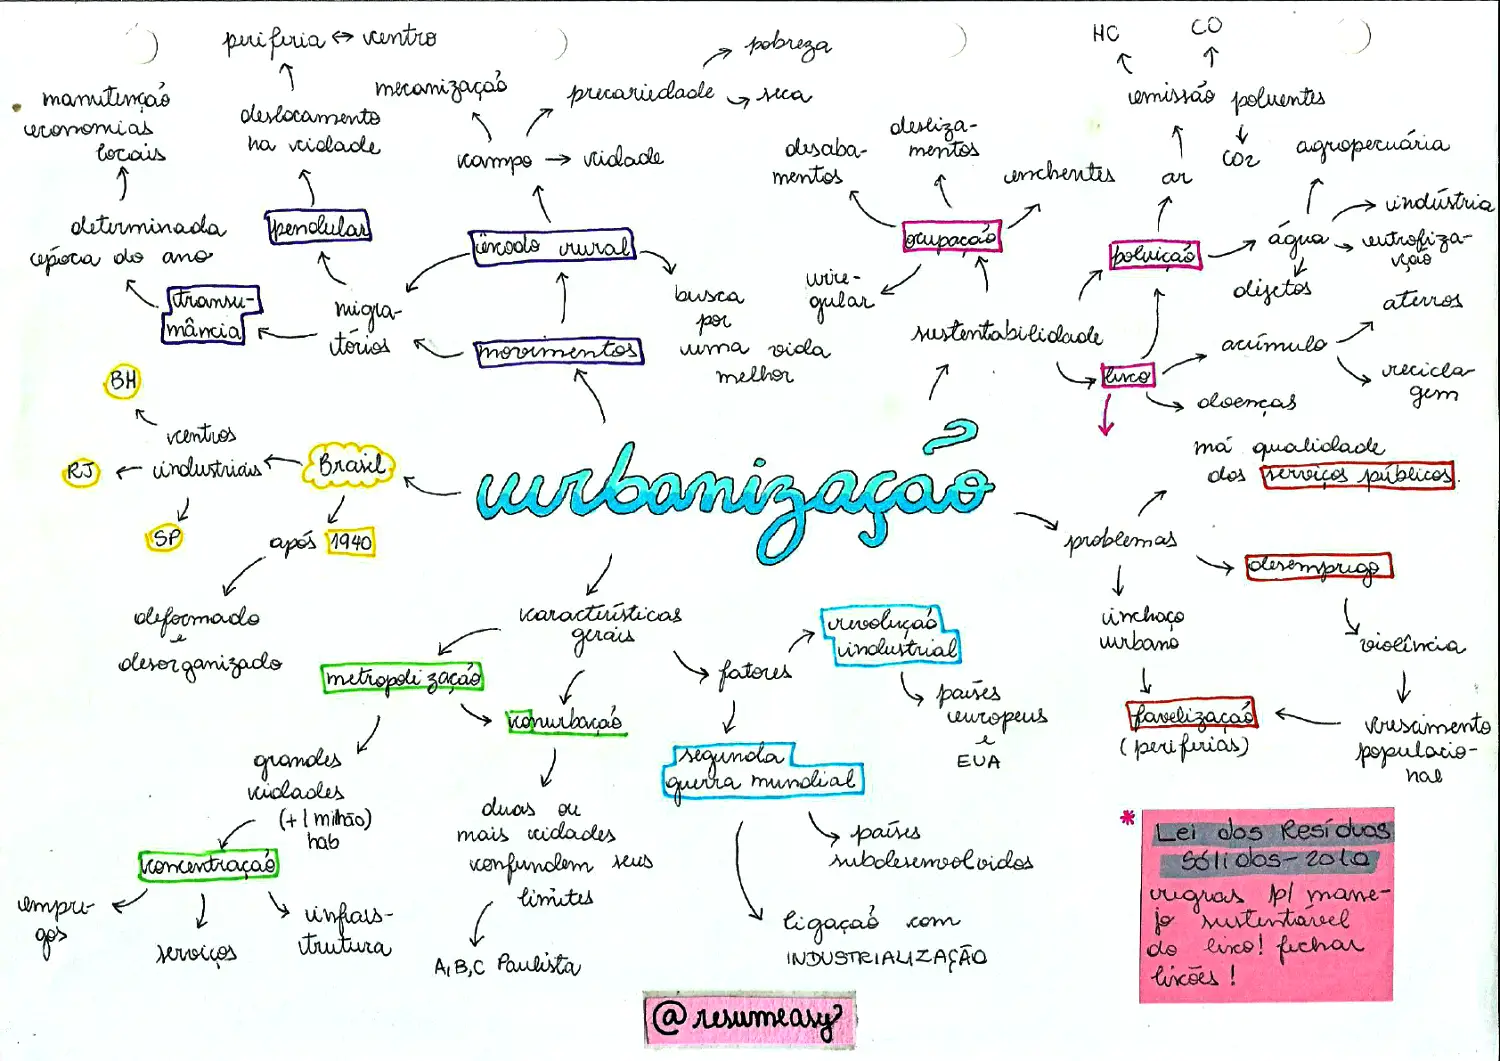 periferia ↔ centro
deslocamento
na cidade
pendular
manutenção
economias
locais
determinada
época do ano
transu-
mância
migra-
tórios
mecanização
precariedade
pobreza
seca
campo → cidade
êxodo rural
busca
por
uma vida
melhor
movimentos
desaba-
mentos
desliza-
mentos
enchentes
ocupação
irre-
gular
sustentabilidade
HC
CO
emissão poluentes
CO2
ar
poluição
água
agropecuária
indústria
eutrofiza-
ção
dejetos
lixo
acúmulo
aterros
recicla-
gem
doenças
urbanização
Brasil
centros
industriais
BH
RJ
SP
após 1940
deformado
e
desorganizado
problemas
má qualidade
dos serviços públicos.
desemprego
violência
crescimento
populacio-
nal
inchaço
urbano
favelização
(periferias)
características
gerais
metropolização
grandes
cidades
(+1 milhão)
hab
concentração
empre-
gos
serviços
infraes-
trutura
conurbação
duas ou
mais cidades
confundem seus
limites
A,B,C Paulista
fatores
revolução
industrial
países
europeus
e
EUA
segunda
guerra mundial
países
subdesenvolvidos
ligação com
INDUSTRIALIZAÇÃO
* Lei dos Resíduos
Sólidos-2010
regras p/ mane-
jo sustentável
do lixo! fechar
lixões!
@resumeasy